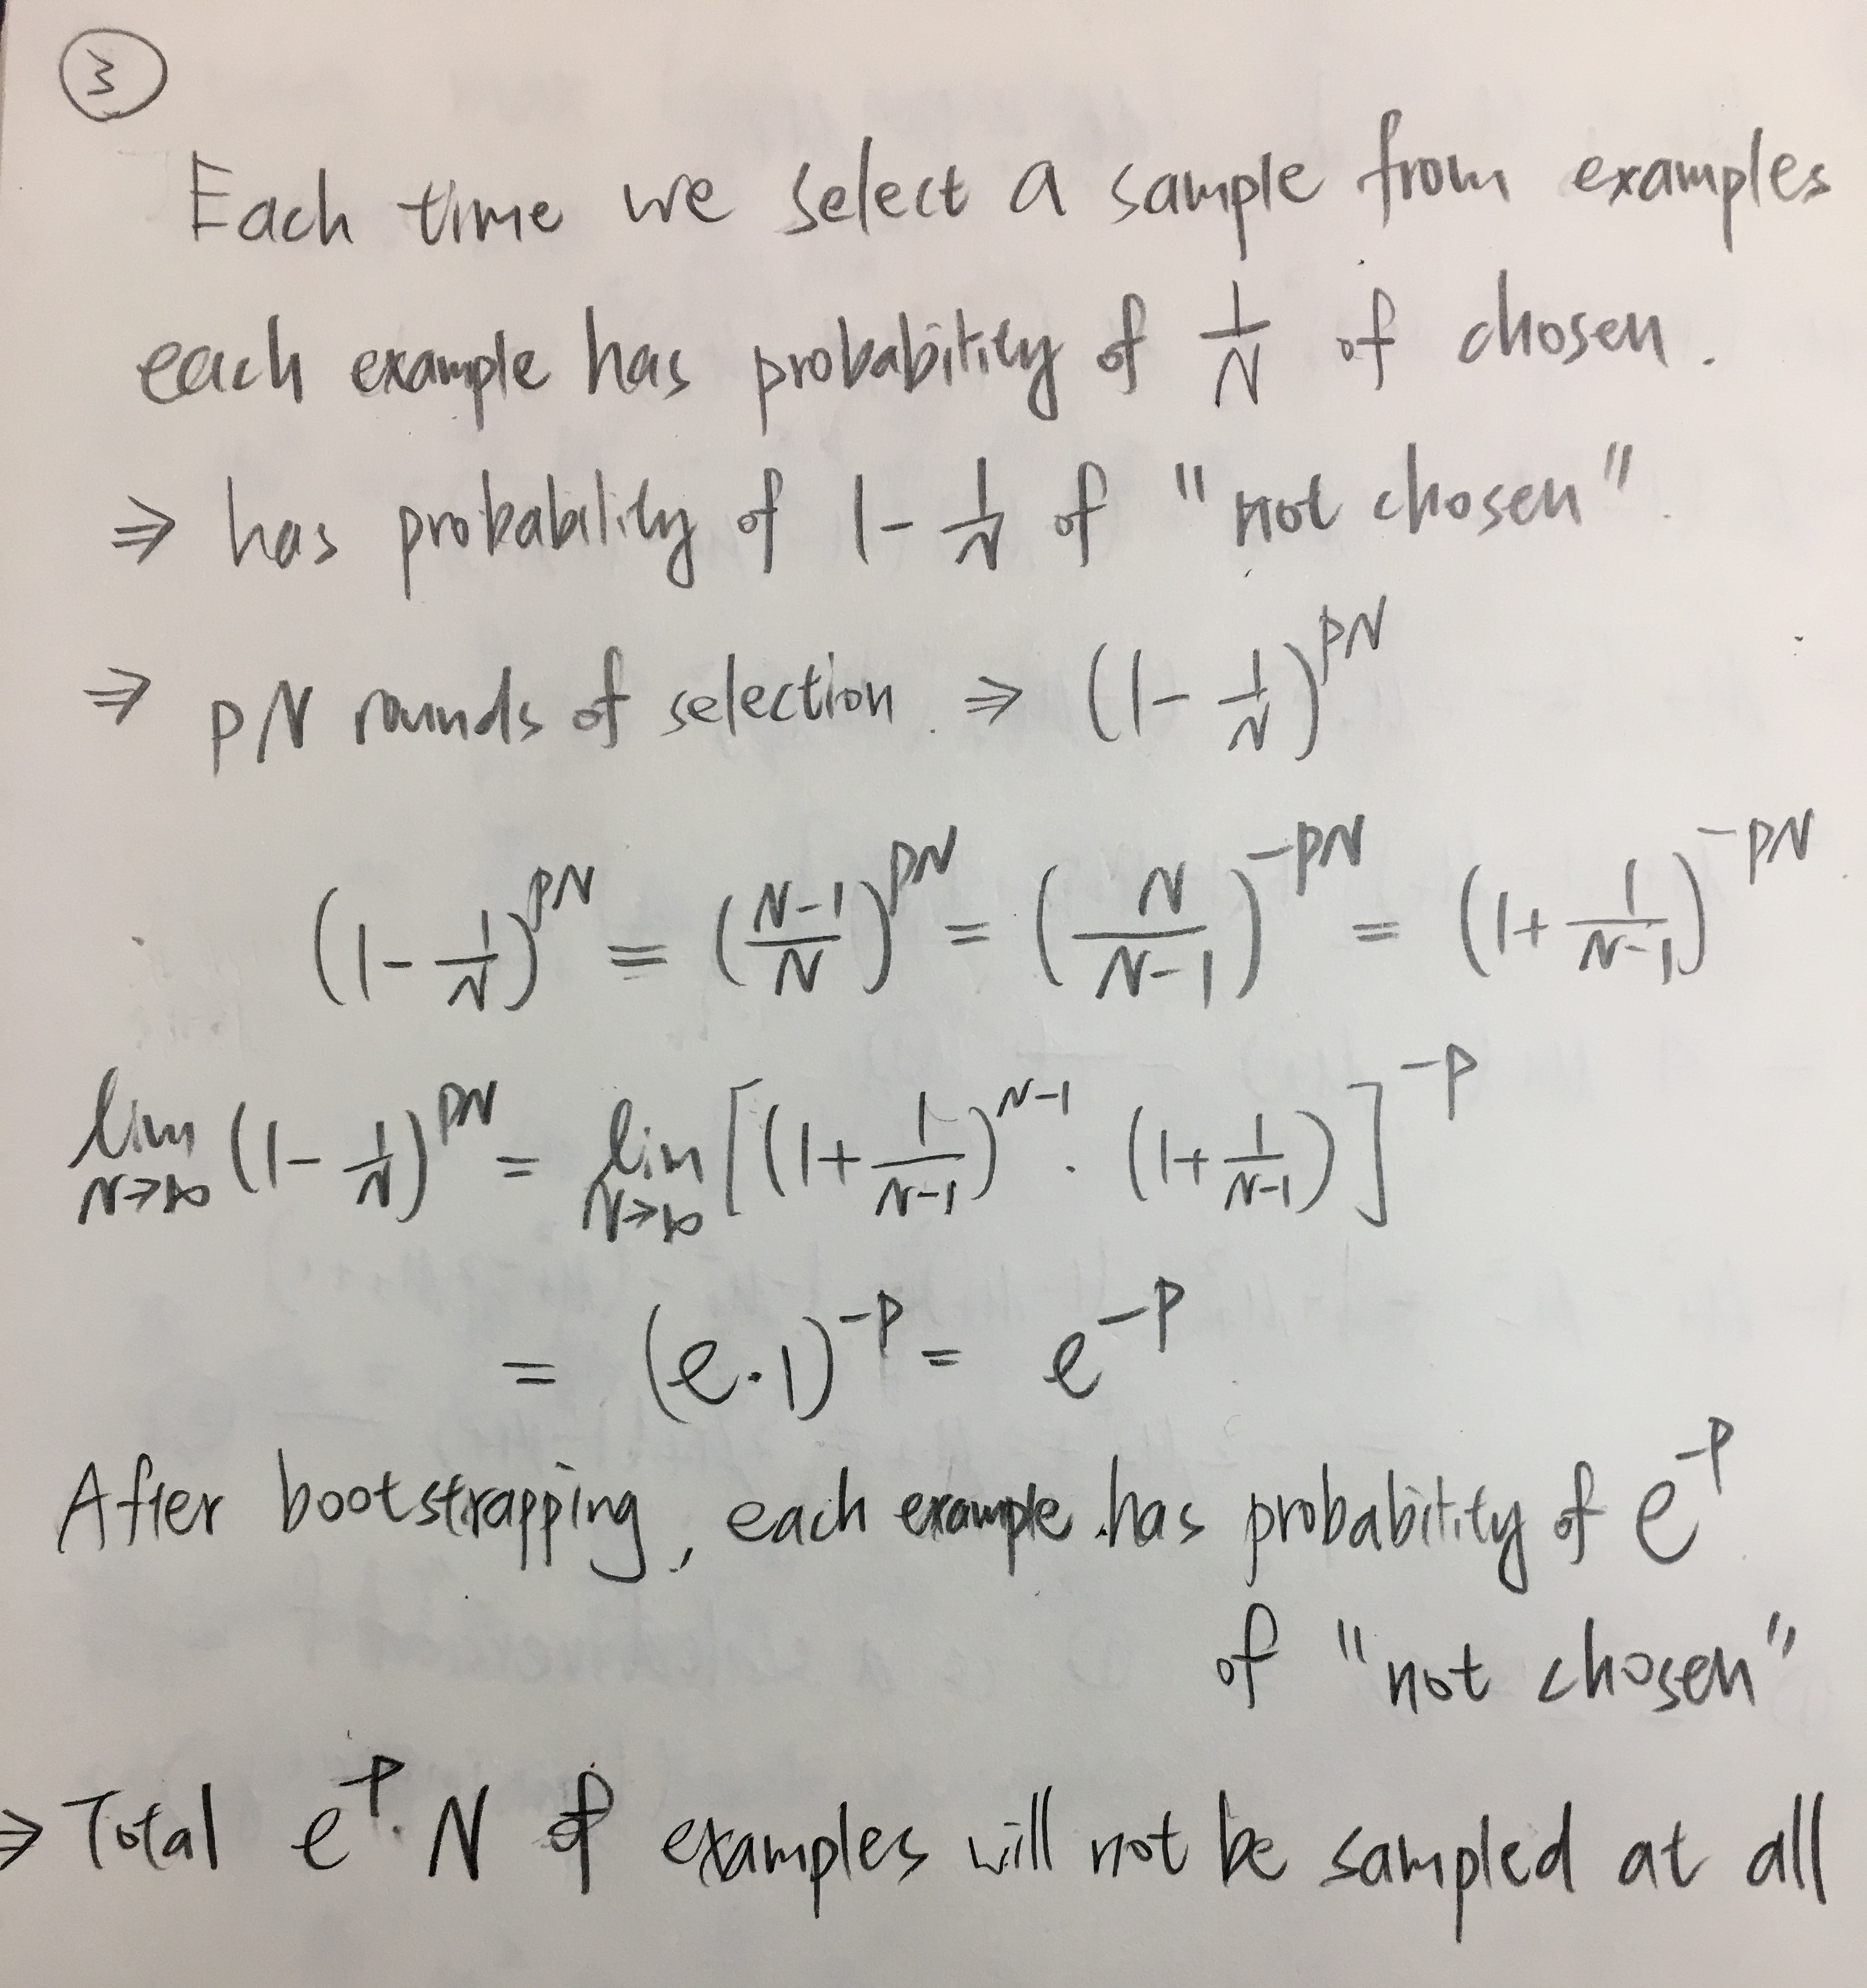 ③
Each time we select a sample from examples
each example has probability of 1/N of chosen.
⇒ has probability of 1 - 1/N of "not chosen".
⇒ pN rounds of selection. ⇒ (1 - 1/N)^pN
(1 - 1/N)^pN = ((N-1)/N)^pN = (N/(N-1))^-pN = (1 + 1/(N-1))^-pN
lim N→∞ (1 - 1/N)^pN = lim N→∞ [(1 + 1/(N-1))^N-1 · (1 + 1/(N-1))]^-p
= (e·1)^-p = e^-p
After bootstrapping, each example has probability of e^-p
of "not chosen"
⇒ Total e^-p · N of examples will not be sampled at all